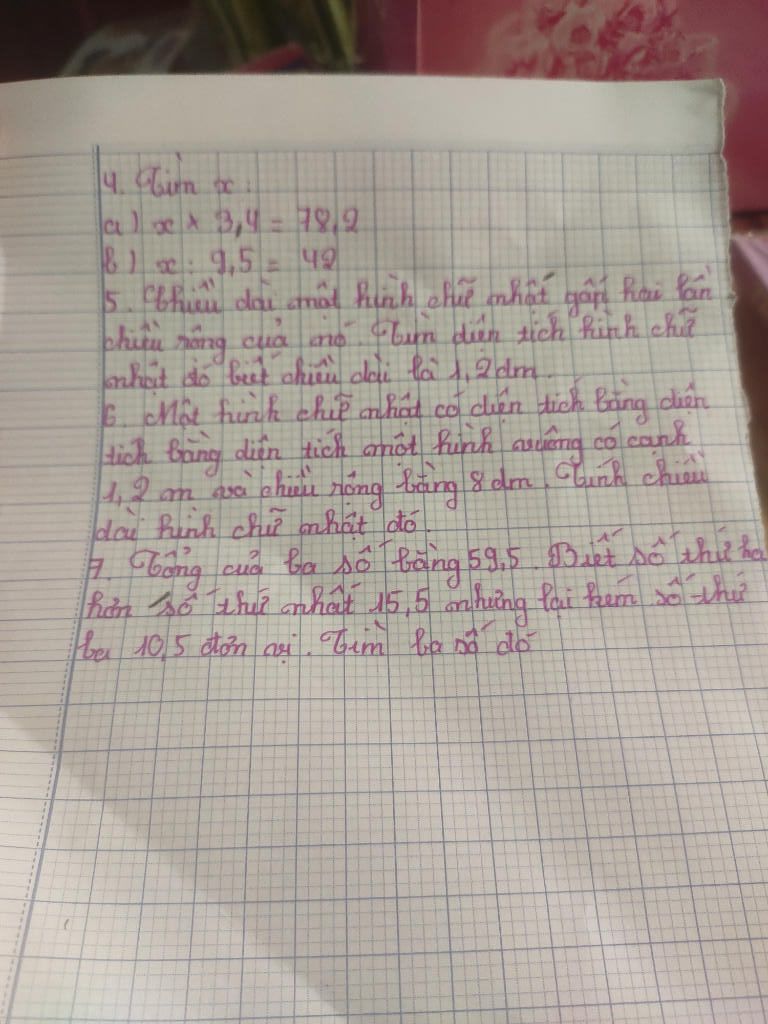 4. Tìm x:
a) x × 3,4 = 78,2
b) x : 9,5 = 42
5. Chiều dài một hình chữ nhất gấp hai lần
chiều rộng của nó. Tìm diện tích hình chữ
nhật đó biết chiều dài là 1,2dm.
6. Một hình chữ nhật có diện tích bằng diện
tích bằng diện tích một hình vuông có cạnh
1,2 m và chiều rộng bằng 8dm. Tính chiều
dài hình chữ nhật đó.
7. Tổng của ba số bằng 59,5. Biết số thứ ha
hơn số thứ nhất 15,5 nhưng lại kém số thứ
ba 10,5 đơn vị. Tìm ba số đó